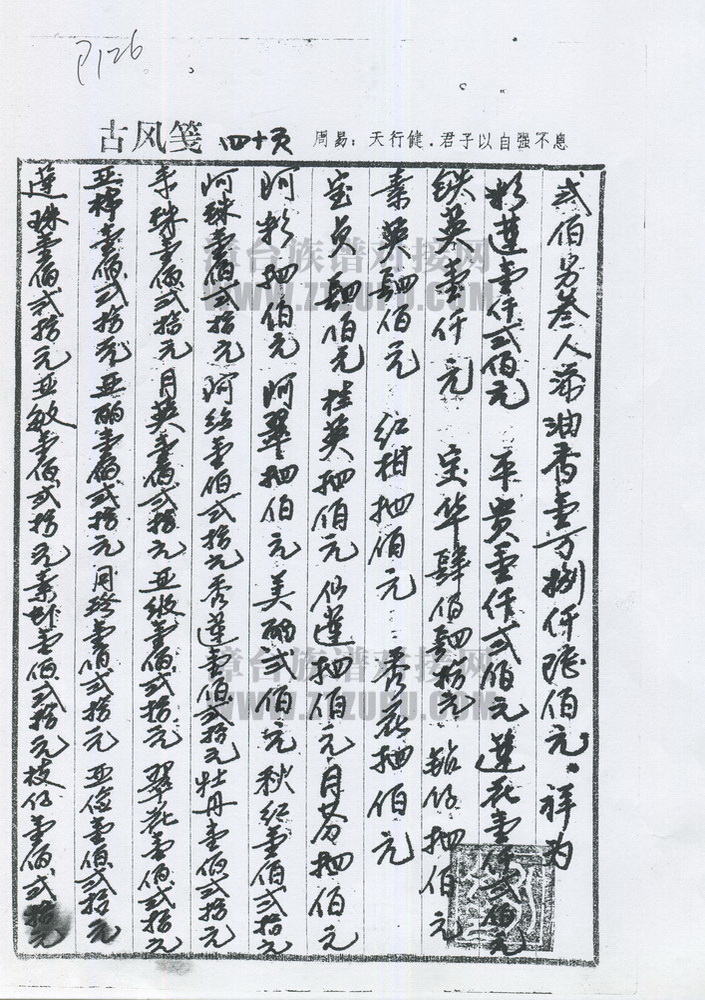 P126
古风笺 四十页 周易：天行健．君子以自强不息
弍佰另叁人添油香壹万捌仟 佰元。祥为
彩莲壹仟弍佰元 平贵壹仟弍佰元 莲花壹仟弍佰元
铁英壹仟元 宝华肆佰 拾元 佰元
素英 佰元 红柑 佰元 秀花 佰元
宝贞 佰元 桂英 佰元 仙莲 佰元 月芬 佰元
阿彩 佰元 阿翠 佰元 美丽弍佰元 秋红壹佰弍拾元
阿珠壹佰弍拾元 阿 壹佰弍拾元 秀莲壹佰弍拾元 牡丹壹佰弍拾元
珠壹佰弍拾元 月英壹佰弍拾元 亚 壹佰弍拾元 翠花壹佰弍拾元
亚 壹佰弍拾元 亚丽壹佰弍拾元 月玲壹佰弍拾元 亚俭壹佰弍拾元
莲珠壹佰弍拾元 亚敏壹佰弍拾元 素 壹佰弍拾元 枝仔壹佰弍拾元
漳台族谱对接网
WWW.ZTZUPU.COM
漳台族谱对接网
WWW.ZTZUPU.COM